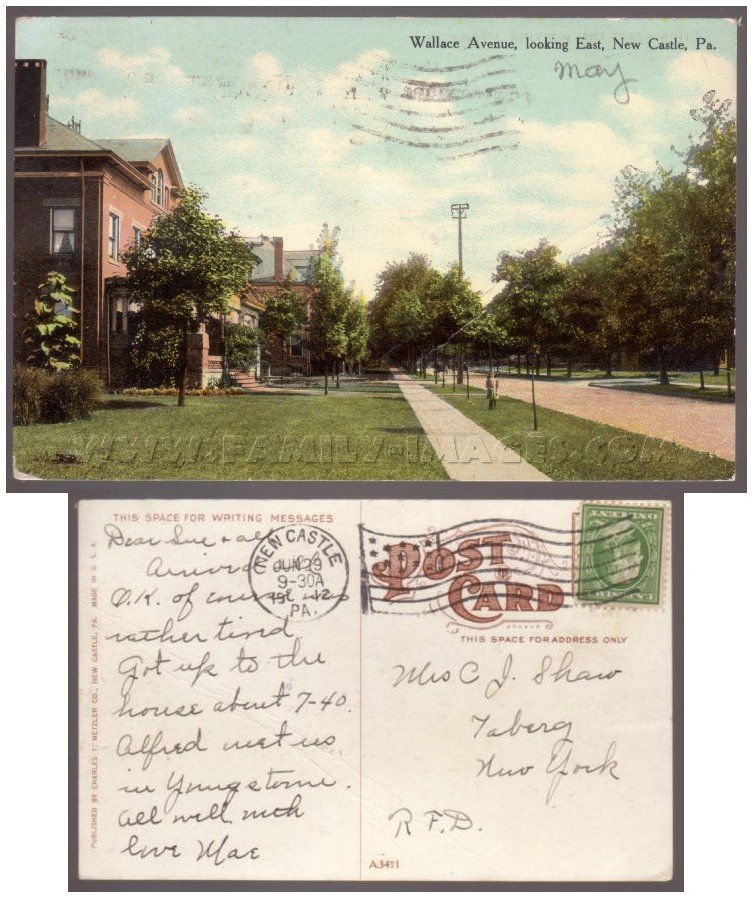 Wallace Avenue, looking East, New Castle, Pa.
May
WWW.FAMILY-IMAGES.COM
THIS SPACE FOR WRITING MESSAGES
Dear Sue + all
Arrived
O.K. of course was
rather tired
Got up to the
house about 7-40.
Alfred met us
in Youngstown.
all well. with
love Mae
NEW CASTLE
JUN 29
9-30A
1912
PA.
POST
CARD
THIS SPACE FOR ADDRESS ONLY
Mrs C J. Shaw
Taberg
New York
R.F.D.
A.3471
PUBLISHED BY CHARLES T. METZLER CO., NEW CASTLE, PA. MADE IN U.S.A.